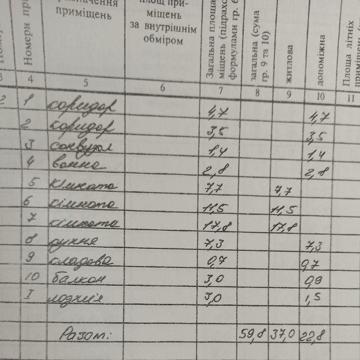 приміщень
Номери
площ при-
міщень
за внутрішнім
обміром
Загальна площа
формулами гр. 6
загальна (сума
гр. 9 та 10)
житлова
допоміжна
Площа літніх
3 4 5 6 7 8 9 10 11
2 1 коридор 4,7 4,7
2 коридор 3,5 3,5
3 санвузл 1,4 1,4
4 ванна 2,8 2,8
5 кімната 7,7 7,7
6 кімната 11,5 11,5
7 кімната 17,8 17,8
8 кухня 7,3 7,3
9 кладова 0,7 0,7
10 балкон 3,0 0,9
I лоджія 3,0 1,5
Разом: 59,8 37,0 22,8